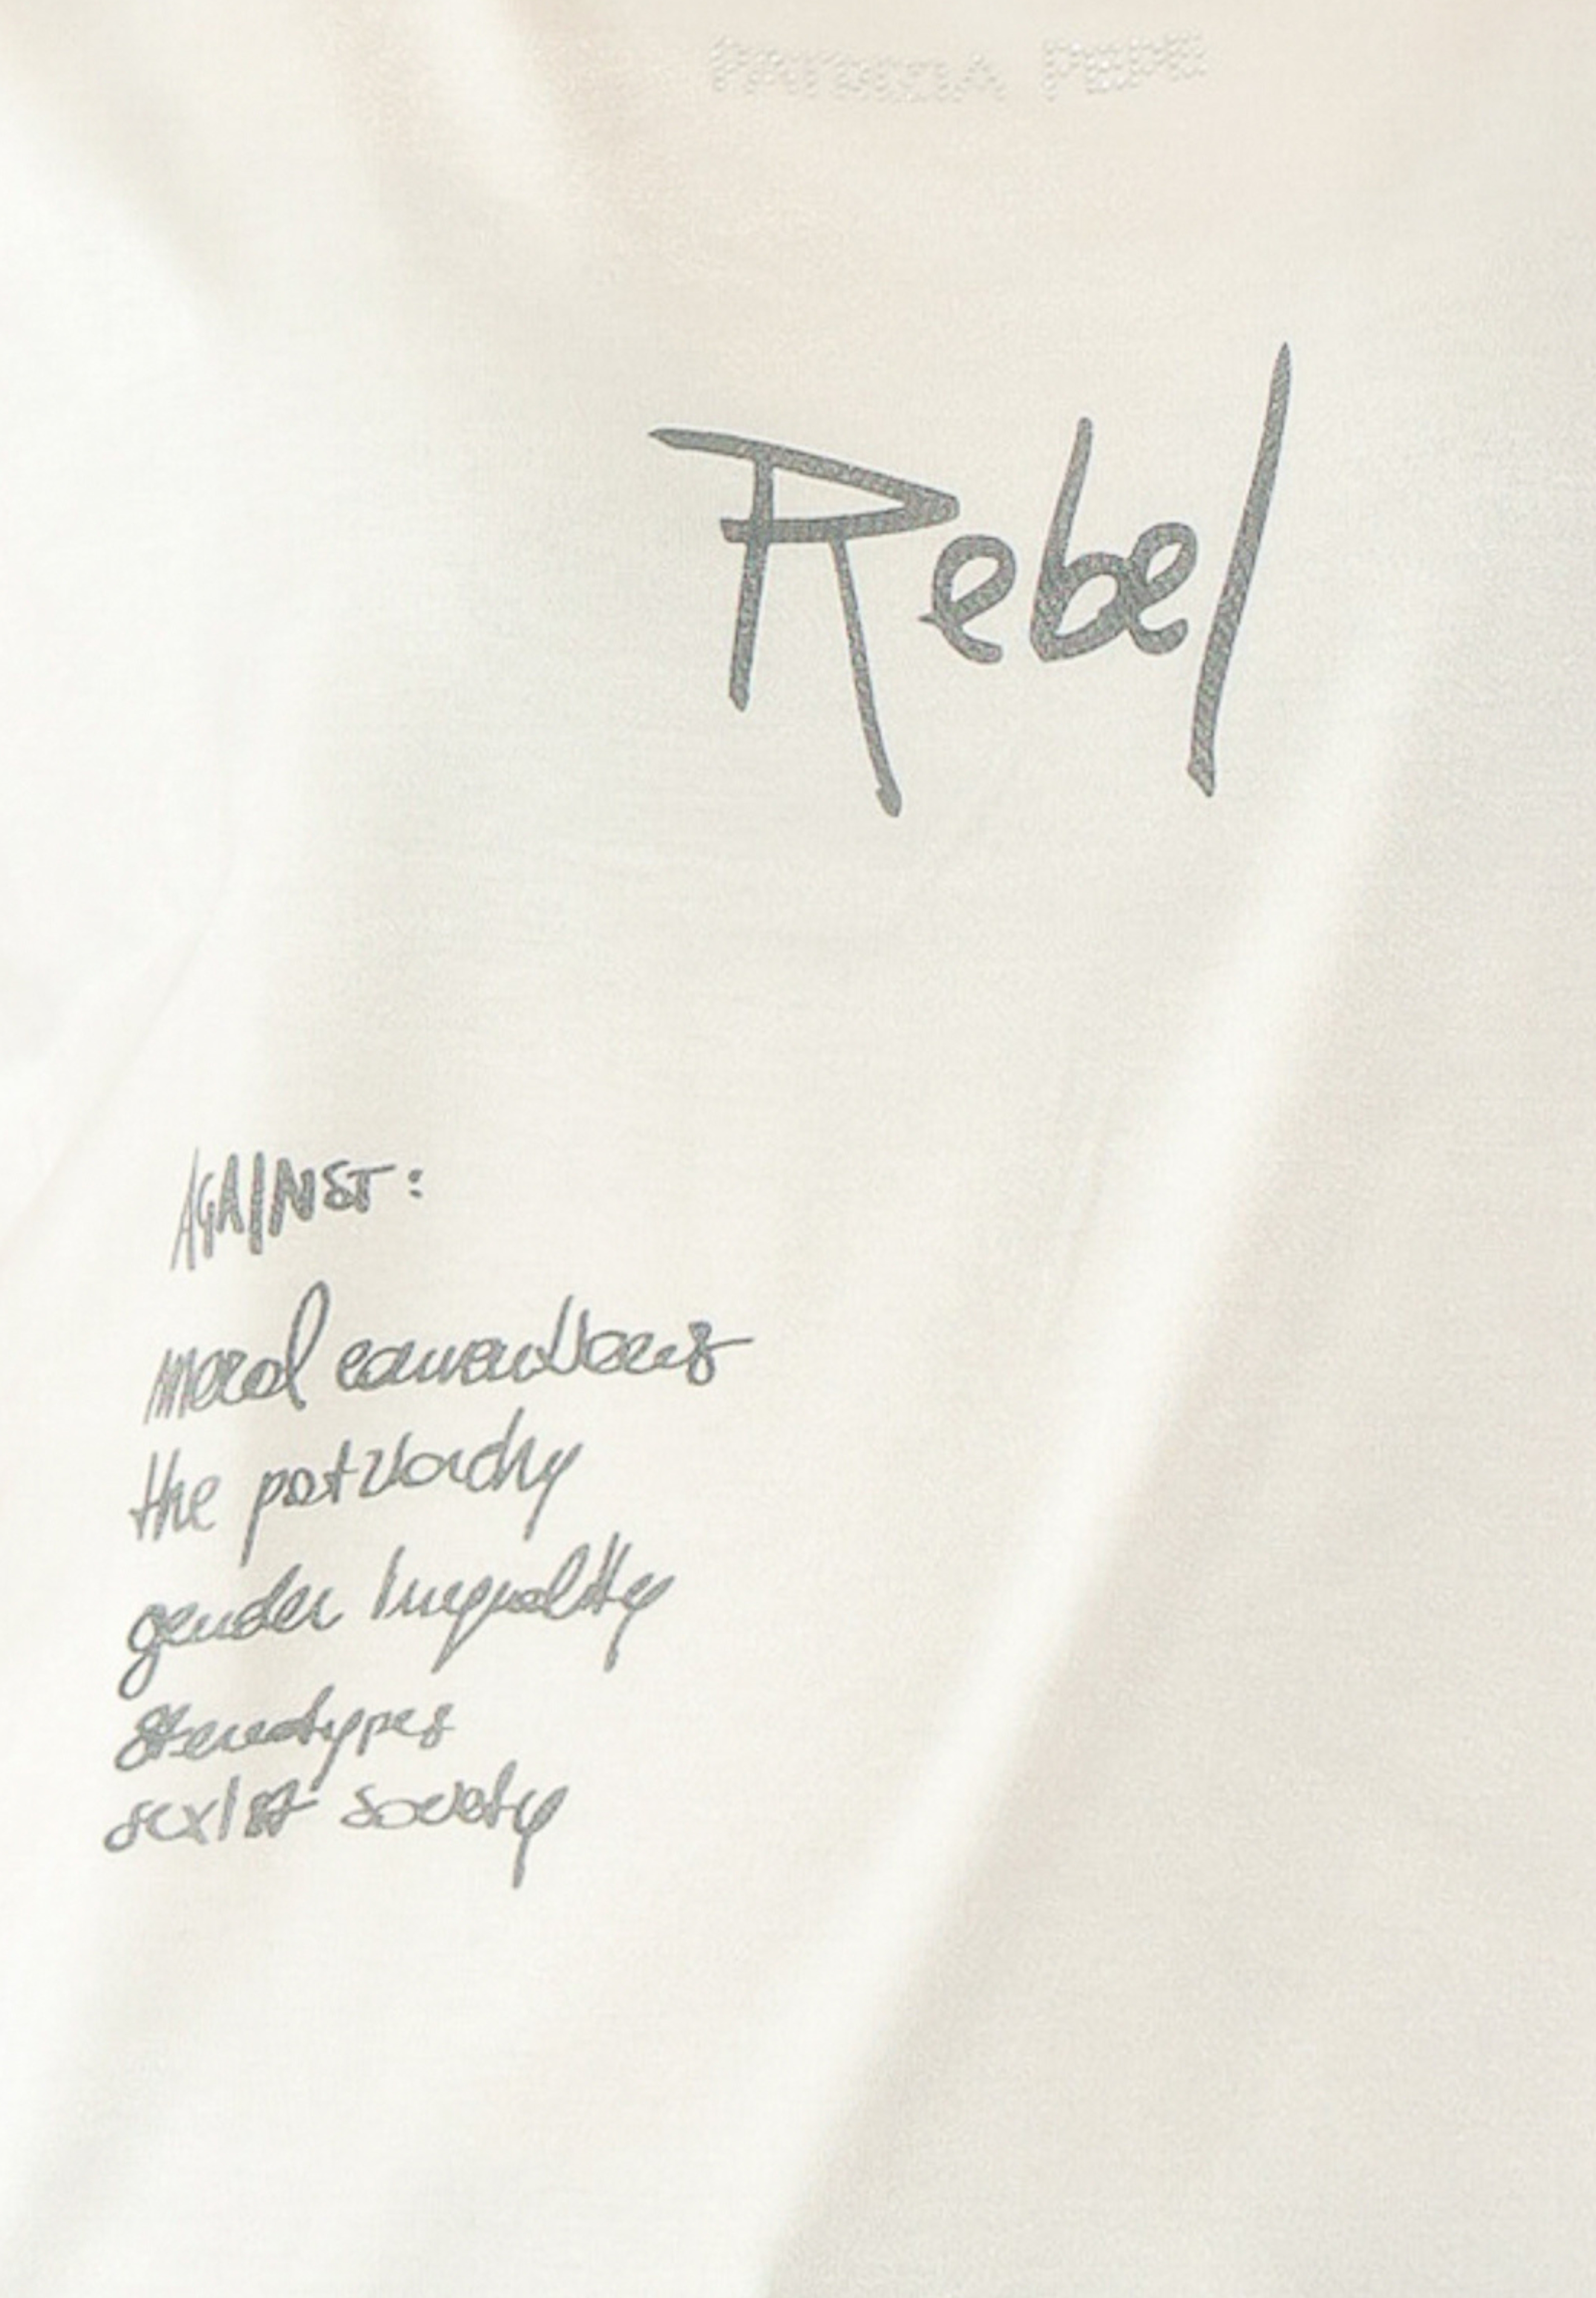 PATRIZIA PEPE
Rebel
AGAINST:
moral conventions
the patriarchy
gender inequality
stereotypes
sexist society